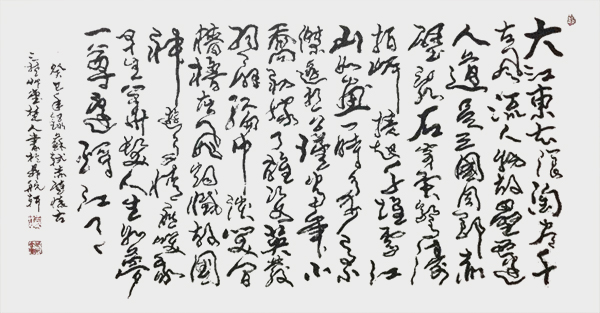 大江東去浪淘盡千
古風流人物故壘西邊
人道是三國周郎赤
壁亂石穿空驚濤
拍岸捲起千堆雪江
山如畫一時多少豪
傑遙想公瑾當年小
喬初嫁了雄姿英發
羽扇綸巾談笑間
檣櫓灰飛煙滅故國
神遊多情應笑我
早生華髮人生如夢
一尊還酹江月
癸巳年錄蘇軾赤壁懷古
堂楚人書於